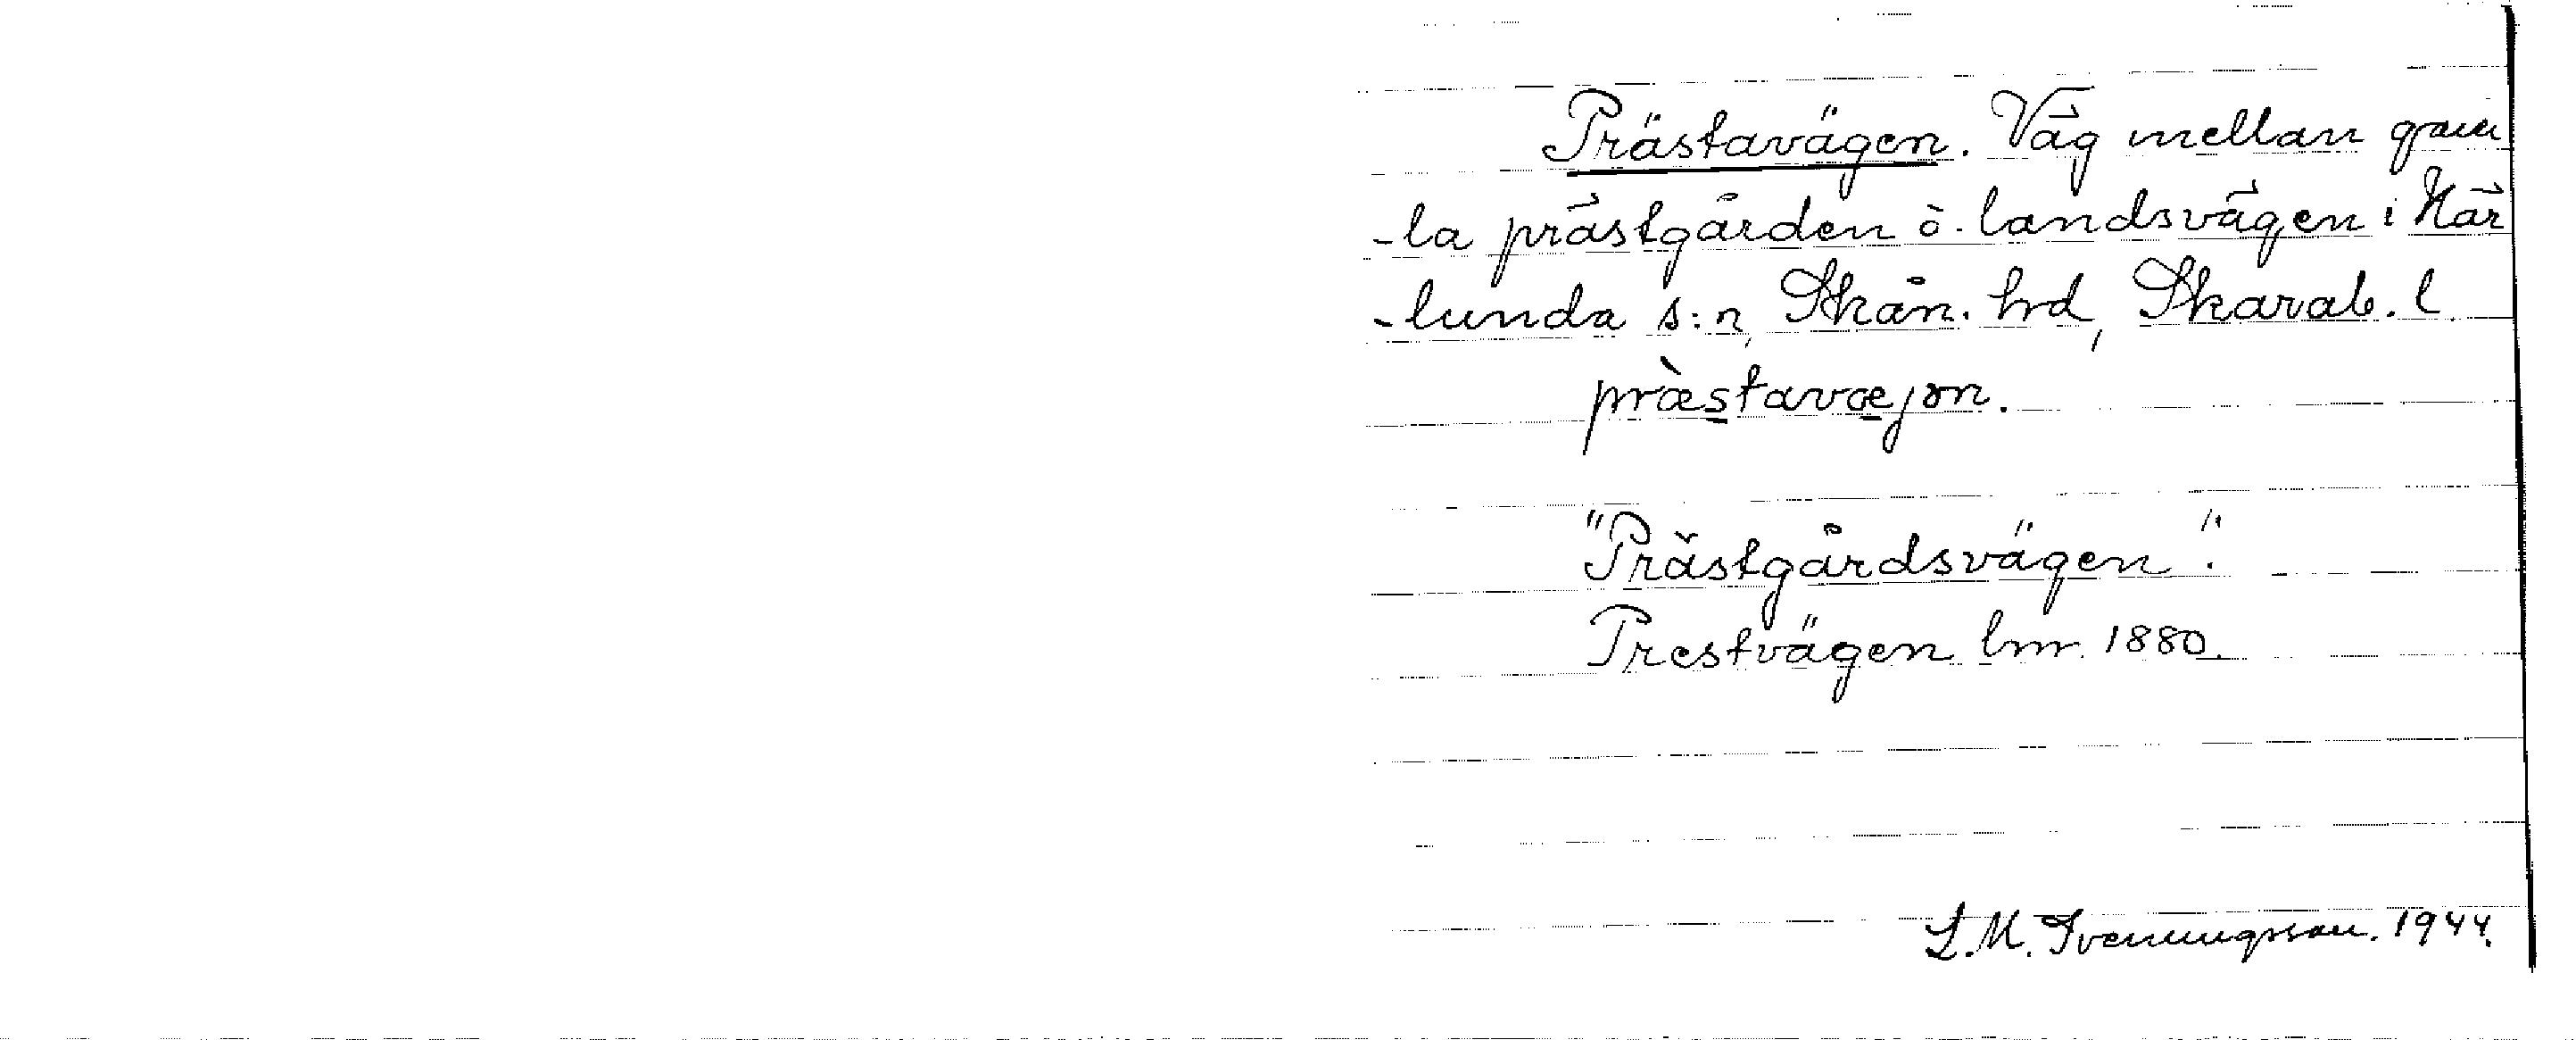 Prästavägen. Väg mellan gam
-la prästgården o. landsvägen i Här
-lunda s:n, Skån. hrd, Skarab. l.
pràstavæjən.
"Prästgårdsvägen".
Prestvägen lm. 1880.
L.M. Svenungsson. 1944.